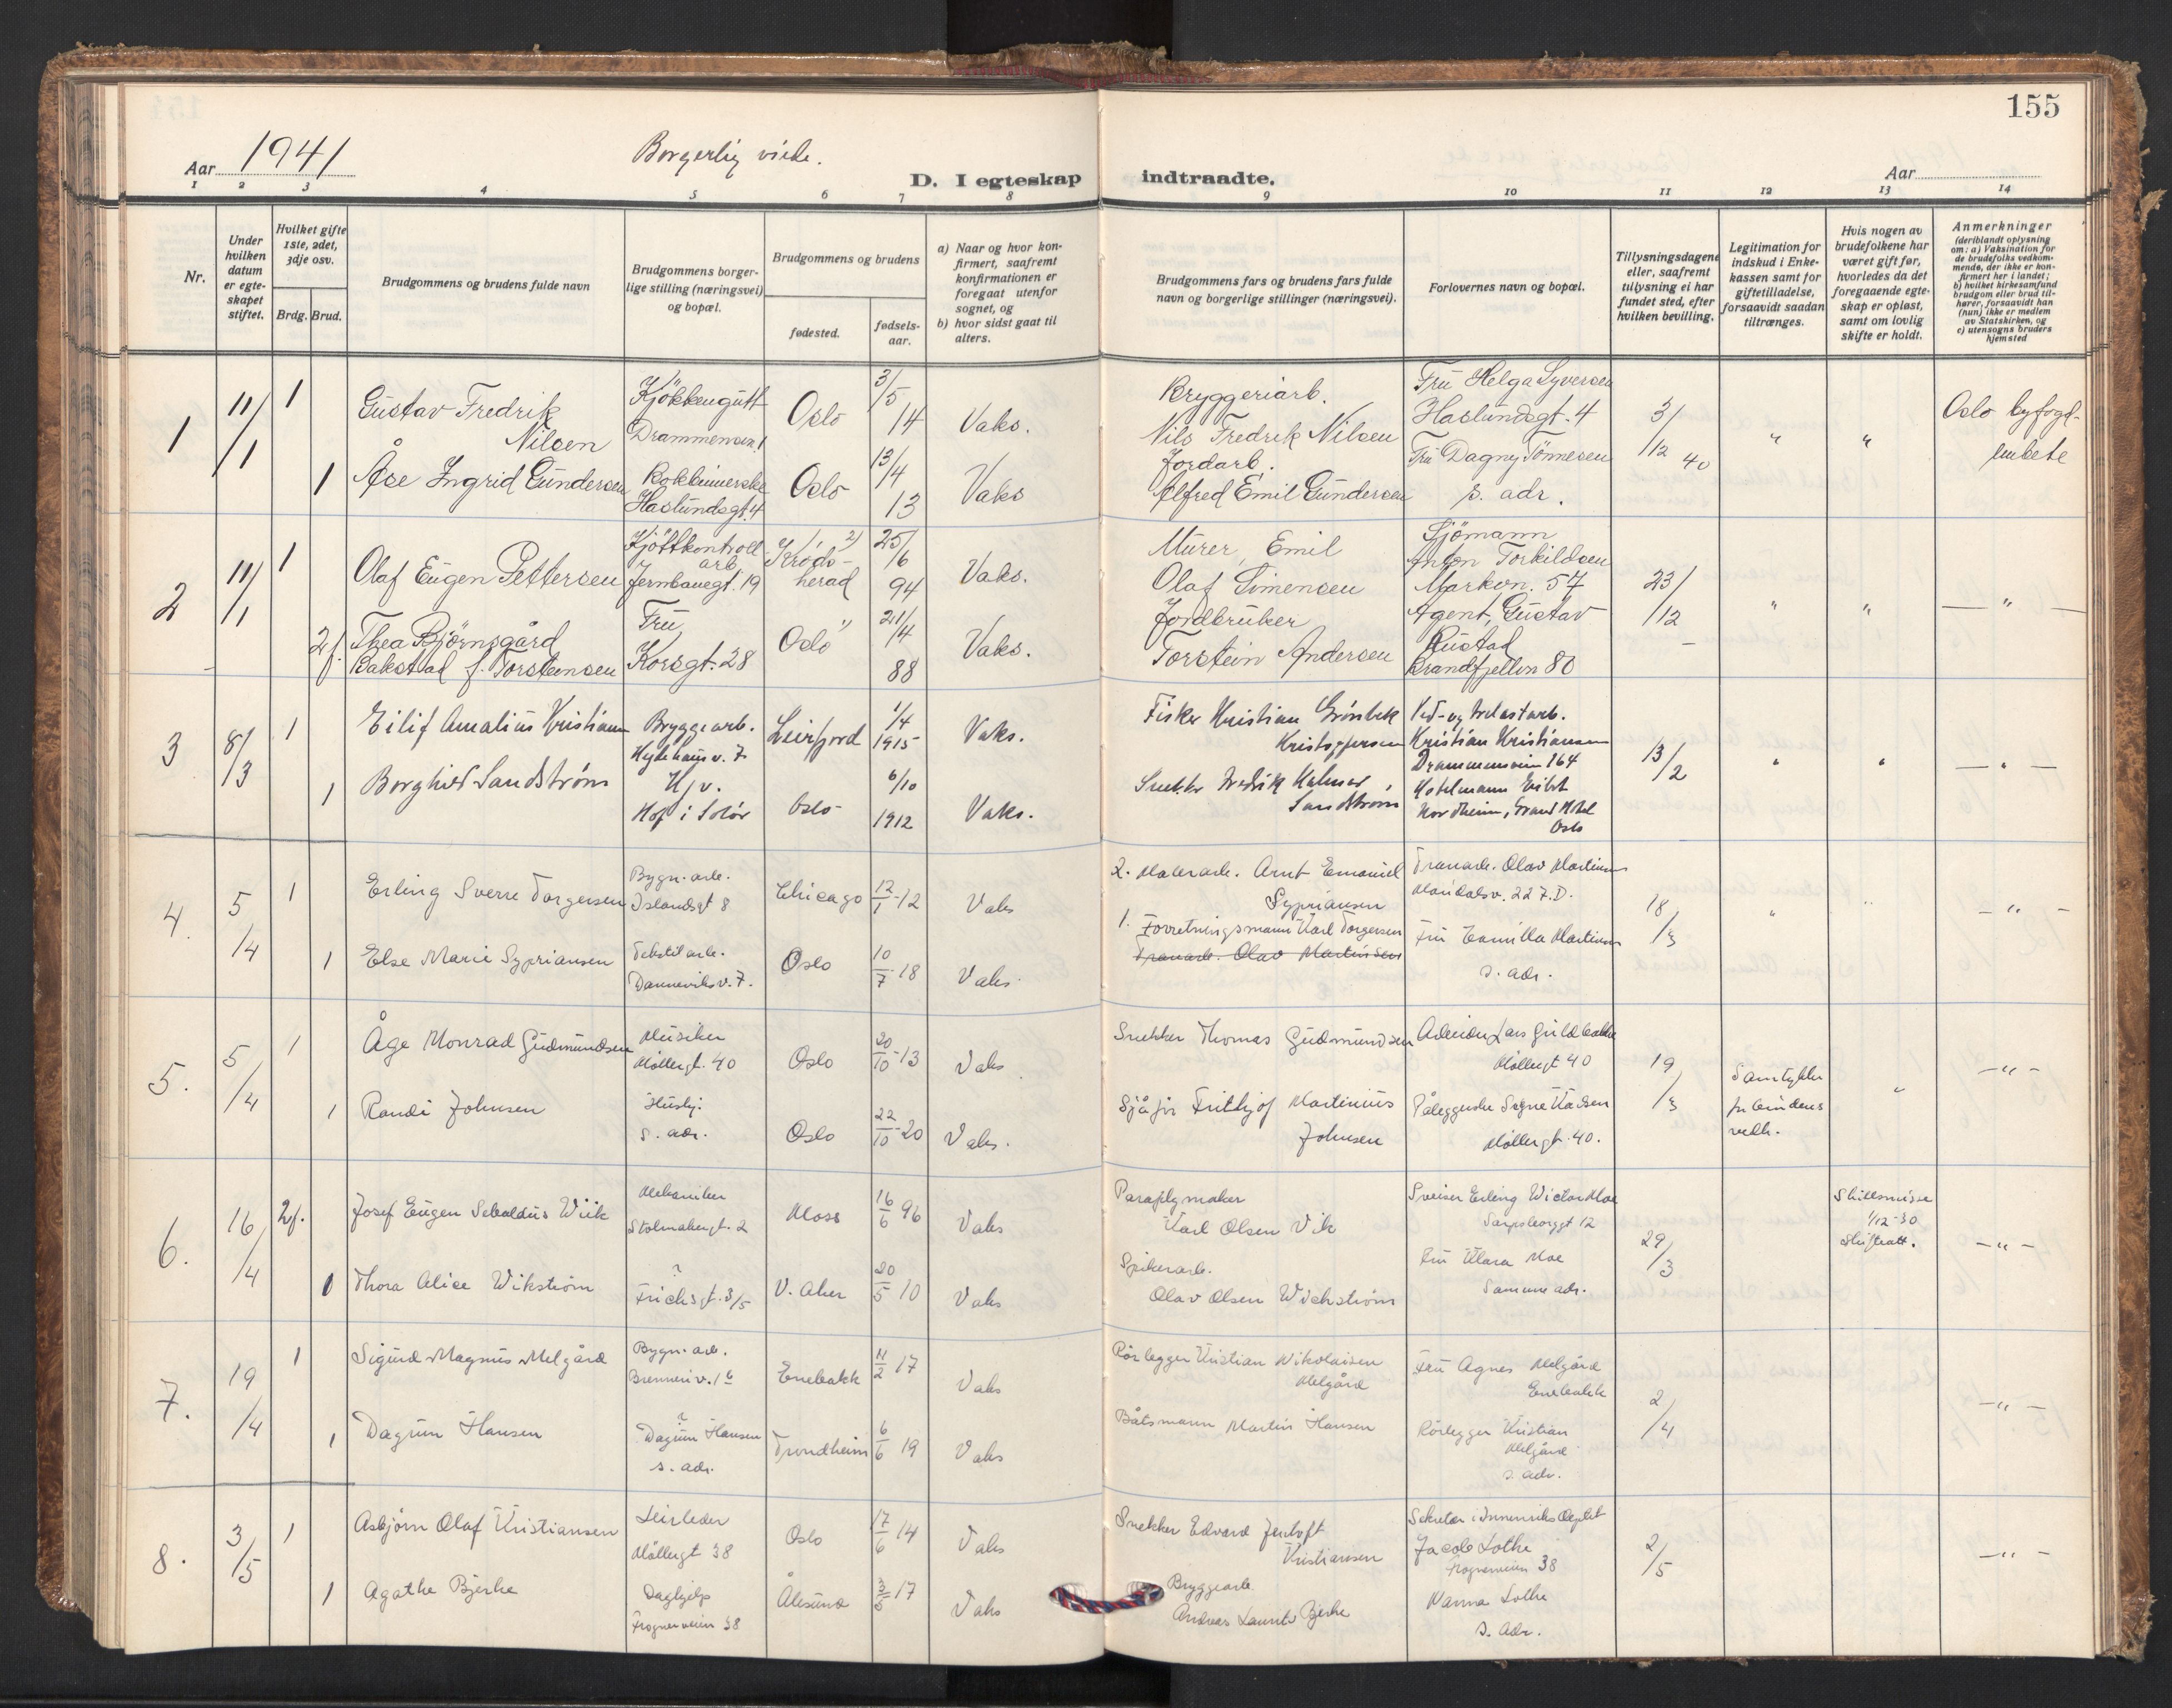 155
Aar 1941
Borgerlig viede.
D. I egteskap indtraadte.
Aar
1 2 3 4 5 6 7 8 9 10 11 12 13 14
Nr.
Under hvilken datum er egteskapet stiftet.
Hvilket gifte 1ste, 2det, 3dje osv.
Brdg. Brud.
Brudgommens og brudens fulde navn
Brudgommens borgerlige stilling (næringsvei) og bopæl.
Brudgommens og brudens
fødested.
fødselsaar.
a) Naar og hvor konfirmert, saafremt konfirmationen er foregaat utenfor sognet, og
b) hvor sidst gaat til alters.
Brudgommens fars og brudens fars fulde navn og borgerlige stillinger (næringsvei).
Forlovernes navn og bopæl.
Tillysningsdagene eller, saafremt tillysning ei har fundet sted, efter hvilken bevilling.
Legitimation for indskud i Enkekassen samt for giftetilladelse, forsaavidt saadan tiltrænges.
Hvis nogen av brudefolkene har været gift før, hvorledes da det foregaaende egteskap er opløst, samt om lovlig skifte er holdt.
Anmerkninger
(deriblandt oplysning om: a) Vaksination for de brudefolks vedkommende, der ikke er konfirmert her i landet; b) hvilket kirkesamfund brudgom eller brud tilhører, forsaavidt han (hun) ikke er medlem av Statskirken, og c) utensogns bruders hjemsted
1 11/1 1 Gustav Fredrik Nilsen
Kjökkengutt
Oslo 3/5 14 Vaks.
Bryggeriarb.
Nils Fredrik Nilsen
Fru Helga Syversen
Haslundsgt. 4
3/12 40 " "
Oslo byfogd-
embete
1 Åse Ingrid Gundersen
Haslundsgt. 4
Oslo 13/4 13 Vaks
Jordarb.
Alfred Emil Gundersen
Fru Dagny Tönnesen
s. adr.
2 11/1 1 Olaf Eugen Pettersen
Kjöttkontroll
arb.
Jernbanegt. 19
Krøds-
herad
25/6 94 Vaks.
Murer, Emil
Olaf Simensen
Sjömann
Anton Torkildsen
Markvn. 57
23/12 " " — " —
2 f. Thea Björnsgård
Bakstad f. Torsteinsen
Fru
Korsgt. 28
Oslo 21/4 88 Vaks.
Jordbruker
Torstein Andersen
Agent, Gustav
Rustad
Brandfjellvn 80
3 8/3 1 Eilif Amalius Kristiansen
Bryggearb.
Leirfjord 1/4 1915 Vaks.
Fisker Kristian Grönbek
Kristoffersen
Kristian Kristiansen
Drammensveien 164
13/2 " " — " —
1 Borghild Sandström
Hjv.
Hof i Solör
Oslo 6/10 1912 Vaks.
Snekker Fredrik Kalmar
Sandström
Nordheim, Grand Hotel
Oslo
4. 5/4 1 Erling Sverre Torgersen
Bygn. arb.
Islandsgt 8
Chicago 12/1-12 Vaks
2. Malerarb. Arnt Emanuel
Sypriansen
Tranarb. Olav Martinsen
Maridalsv. 227.D.
18/3 " " — " —
1 Else Marie Sypriansen
Tekstilarb.
Danneviksv. 7.
Oslo 10/7-18 Vaks.
1. Forretningsmann Karl Torgersen
Tranarb. Olav Martinsen
Fru Camilla Martinsen
s. adr.
5. 5/4 1 Åge Monrad Gudmundsen
Musiker
Möllergt. 40
Oslo 20/10-13 Vaks
Snekker Thomas Gudmundsen
Arbeider Lars Guldbakke
Möllergt 40
19/3
Samtykke
for brudens
vedk.
" — " —
1 Randi Johnsen
Husbj.
s. adr.
Oslo 22/10-20 Vaks.
Sjåför Frithjof Martinius
Johnsen
Påleggerske Signe Madsen
Möllergt. 40.
6. 16/4 2f. Josef Eugen Sebaldus Wiik
Mekaniker
Stolmakergt. 2
Moss 16/6 96 Vaks
Paraplymaker
Karl Olsen Vik
Sveiser Erling Wictor Moe
Sarpsborggt 12
29/3
Skilsmisse
1/12-30
Skifteatt.
— " —
1 Thora Alice Wikström
?
Frichsgt. 3/5
V. Aker 20/5 10 Vaks
Spikerarb.
Olav Olsen Wichström
Fru Klara Moe
Samme adr.
7. 19/4 1 Sigurd Magnus Melgård
Bygn. arb.
Brenneriv. 1 b
Enebakk 11/2 17 Vaks
Rörlegger Kristian Nikolaisen
Melgård
Fru Agnes Melgård
Enebakk
2/4 — " —
1 Dagrun Hansen
?
Dagrun Hansen
s. adr.
Trondheim 6/6 19 Vaks
Båtsmann Martin Hansen
Rörlegger Kristian
Melgård
s. adr.
8. 3/5 1 Asbjörn Olaf Kristiansen
Leirleder
Möllergt 38
Oslo 17/6 14 Vaks
Snekker Edvard Jentoft
Kristiansen
Sekretær i Innenriksdeptet
Jacob Lothe
Frognerveien 38
2/5 — " —
1 Agathe Bjerke
Daghjelp
Frognerveien 38
Ålesund 3/5 17 Vaks
Bryggearb.
Andreas Laurits Bjerke
Nanna Lothe
s. adr.